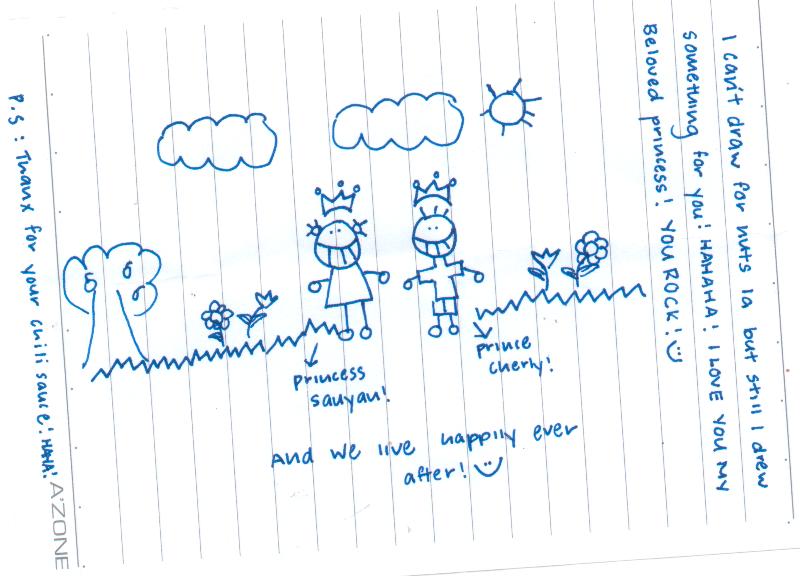 I can't draw for nuts la but still I drew
something for you! HAHAHA! I LOVE YOU MY
Beloved princess! YOU ROCK!
princess
sauyau!
prince
cherly!
And we live happily ever
after!
P.S: Thanx for your chili sauce! HAHA!
A'ZONE